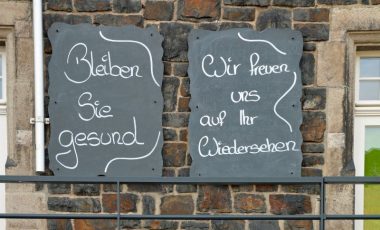 Bleiben
Sie
gesund
Wir freuen
uns
auf Ihr
Wiedersehen